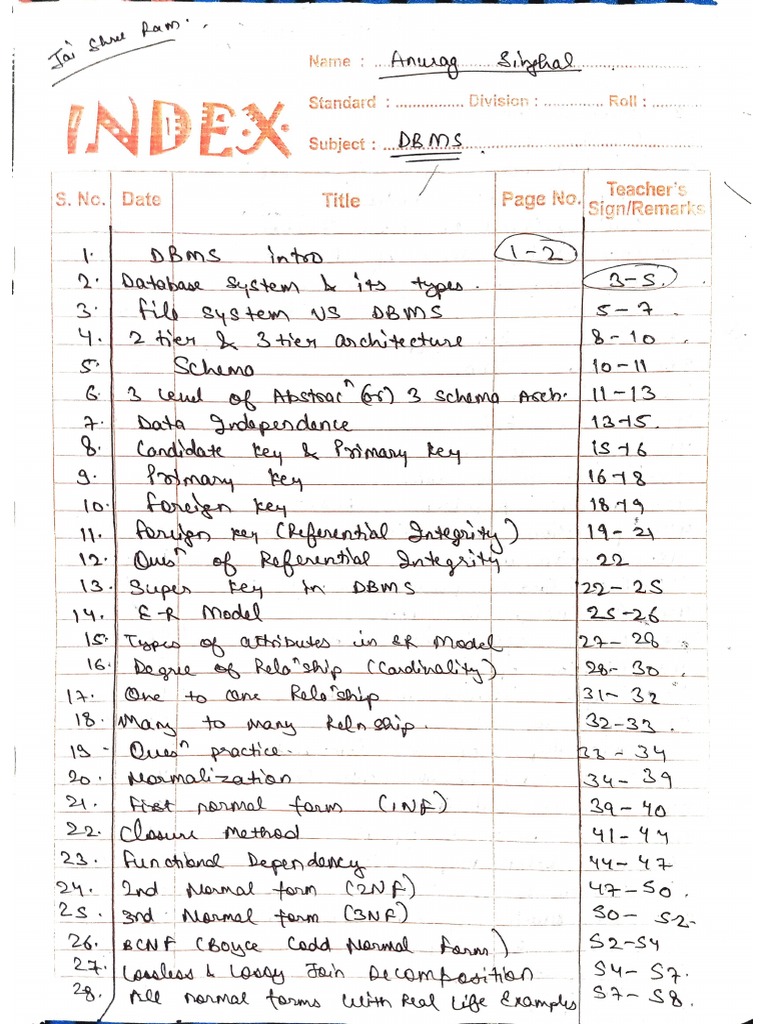 Jai Shree Ram.
Name : Anurag Singhal
Standard : Division : Roll :
INDEX
Subject : DBMS
S. No. Date Title Page No. Teacher's Sign/Remarks
1. DBMS intro 1-2
2. Database system & its types. 3-5.
3. file system VS DBMS 5-7
4. 2 tier & 3 tier architecture 8-10
5. Schema 10-11
6. 3 level of Abstracⁿ (or) 3 Schema Arch. 11-13
7. Data Independence 13-15.
8. Candidate key & Primary key 15-16
9. Primary key 16-18
10. foreign key 18-19
11. foreign key (Referential Integrity) 19-21
12. Quesⁿ of Referential Integrity 22
13. Super key in DBMS 22-25
14. E-R Model 25-26
15. Types of attributes in ER Model 27-28
16. Degree of Relaⁿship (Cardinality) 28-30
17. One to one Relaⁿship 31-32
18. Many to many Relnship. 32-33.
19. Quesⁿ practice. 33-34
20. Normalization 34-39
21. First normal form (1NF) 39-40
22. Closure Method 41-44
23. Functional Dependency 44-47
24. 2nd Normal form (2NF) 47-50.
25. 3rd Normal form (3NF) 50-52-
26. BCNF (Boyce Codd Normal Forms) 52-54
27. Lossless & Lossy Join Decomposition 54-57.
28. All normal forms with Real Life Examples 57-58.